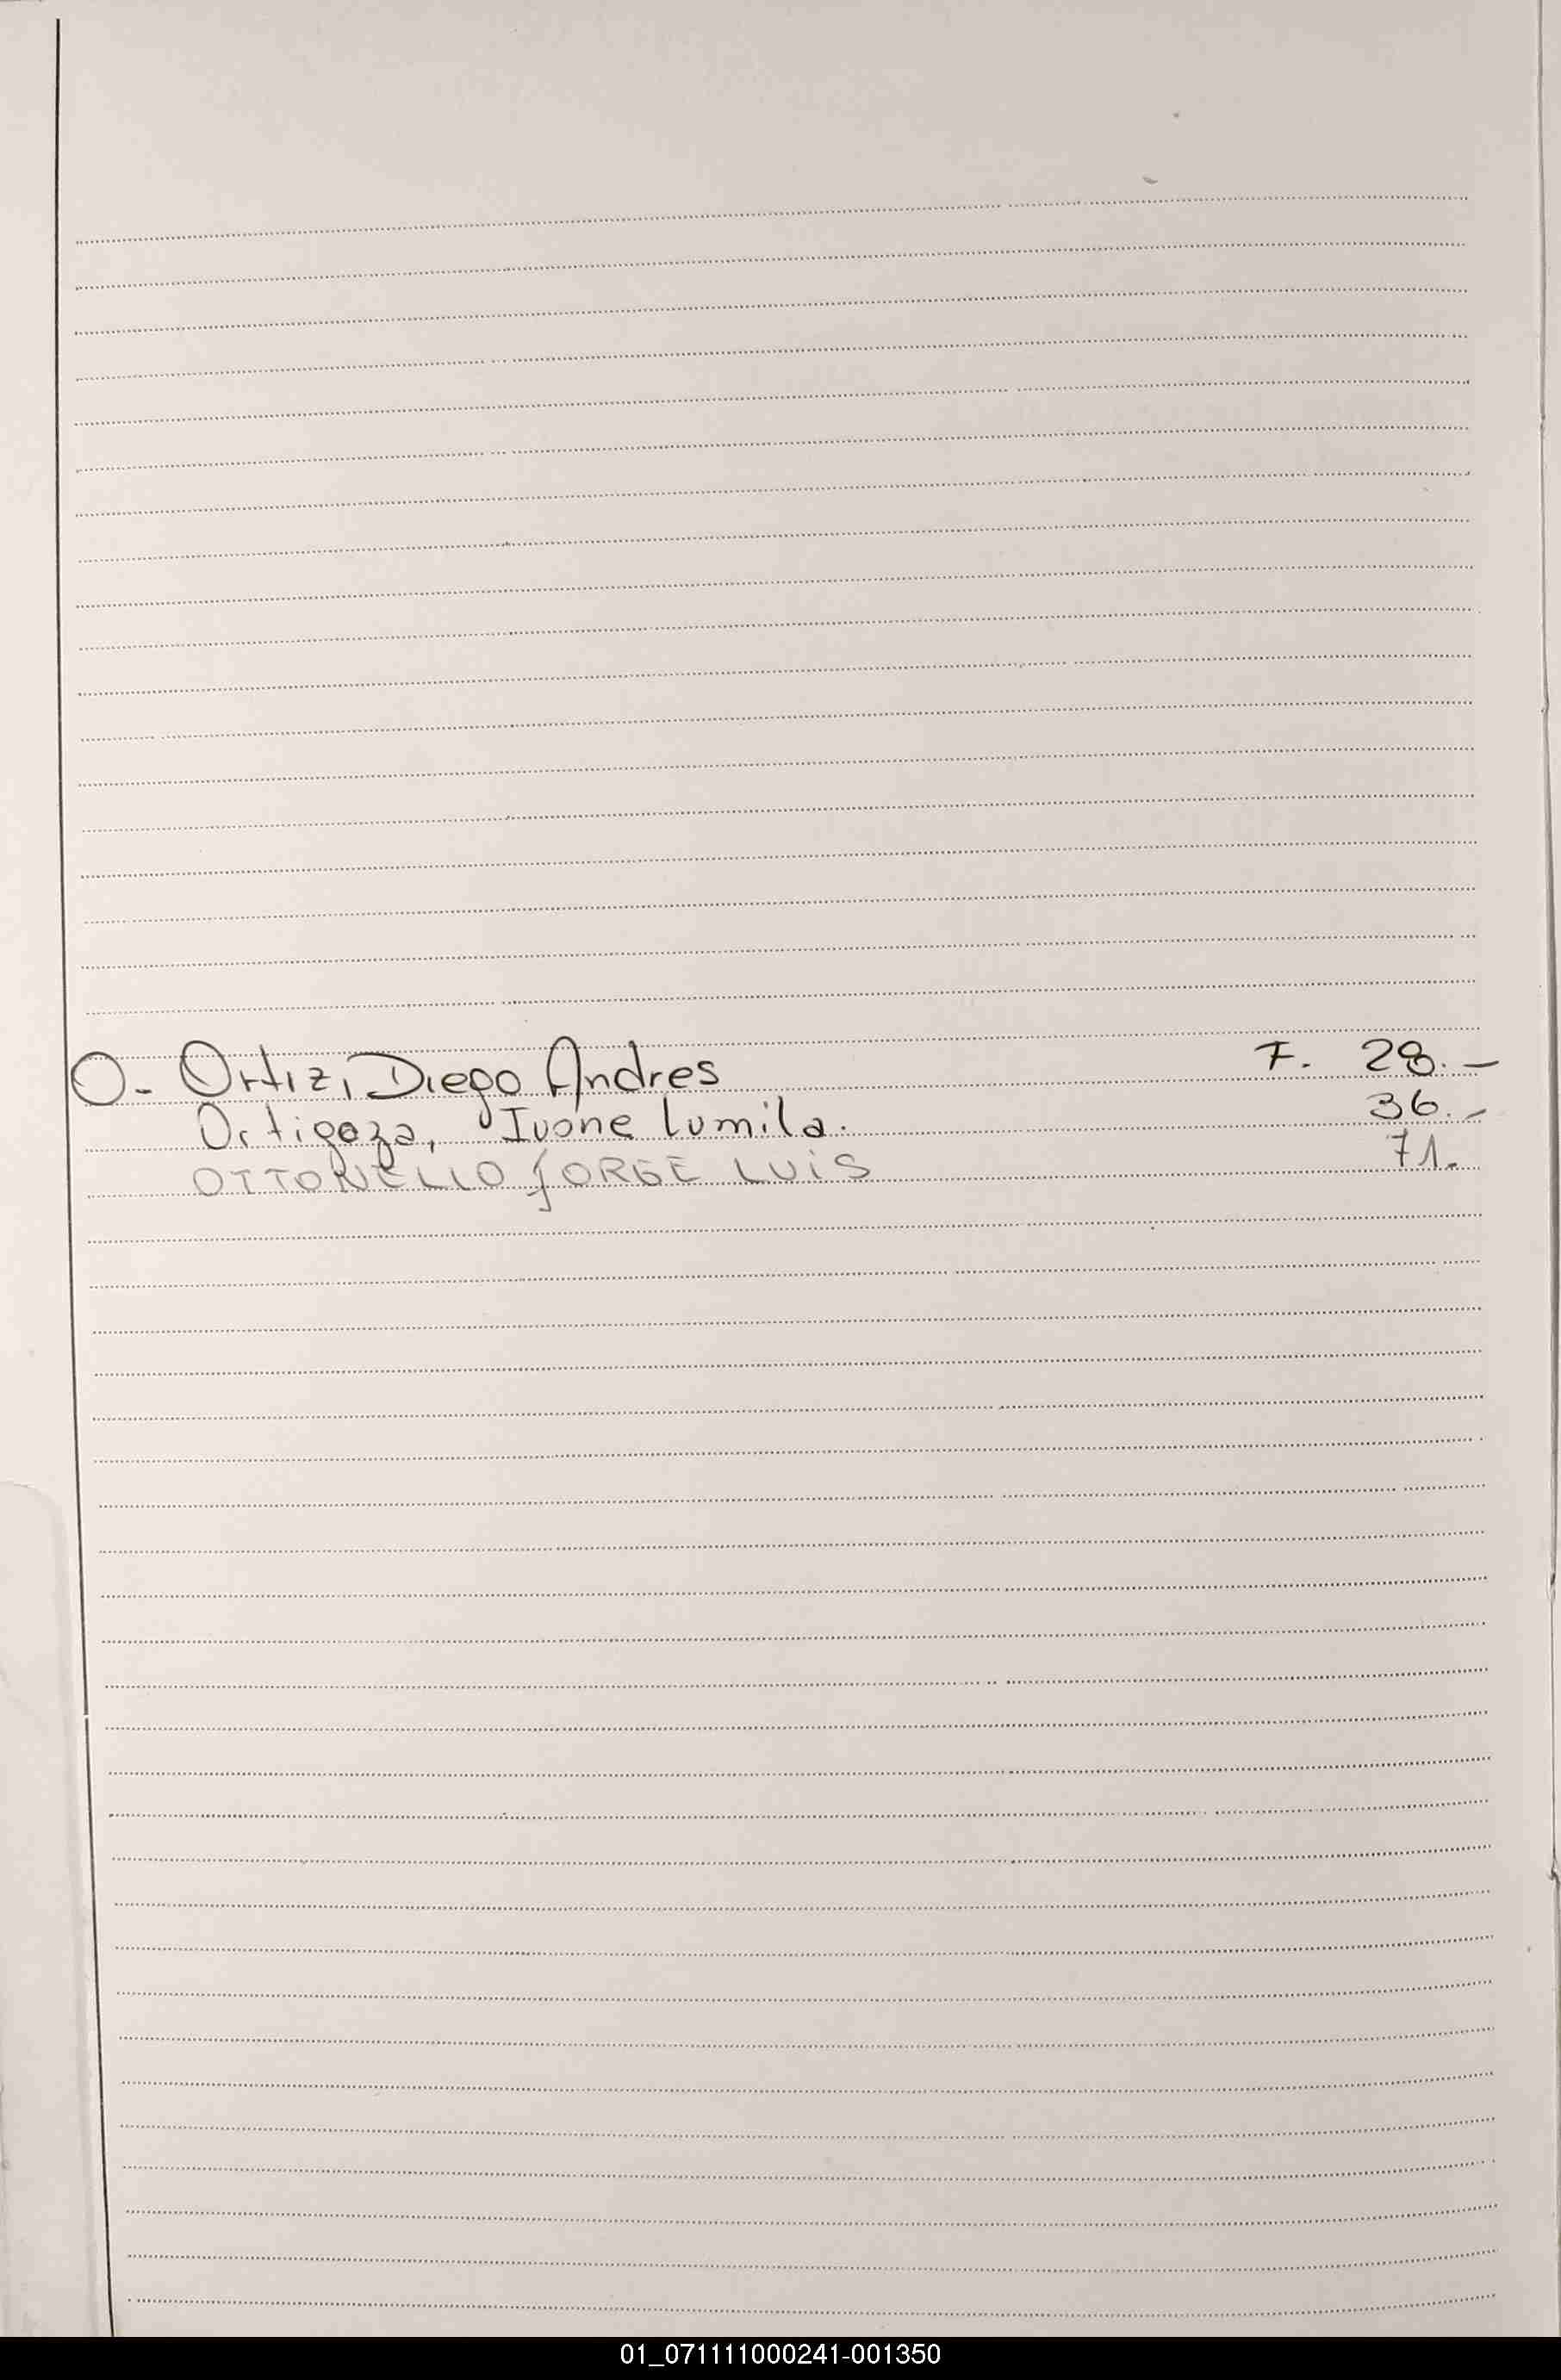 O- Ortiz, Diego Andres F. 28.-
Ortigoza, Ivone Lumila. 36.-
OTTONELLO JORGE LUIS 71.
01_071111000241-001350